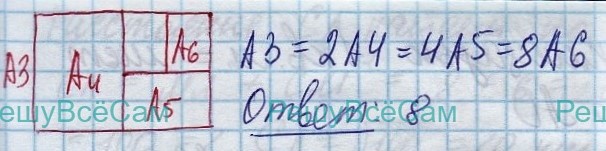 A3
A4
A6
A5
A3 = 2A4 = 4A5 = 8A6
Ответ: 8
РешуВсёСам
РешуВсёСам
Реш